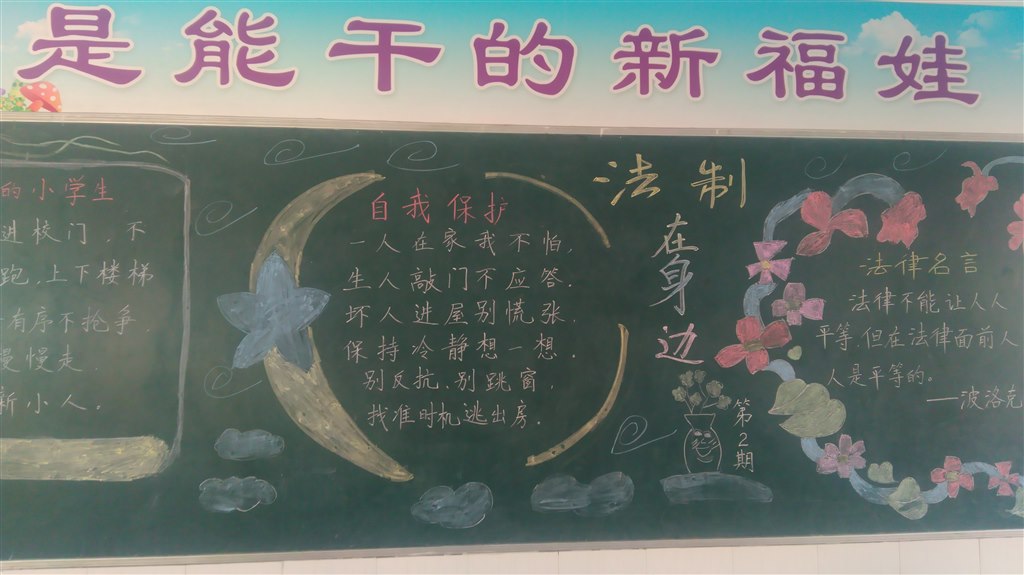 是能干的新福娃
的小学生
进校门，不
跑，上下楼梯
有序不抢争，
慢慢走，
新小人。
自我保护
一人在家我不怕，
生人敲门不应答．
坏人进屋别慌张，
保持冷静想一想．
别反抗，别跳窗，
找准时机逃出房．
法制
在身边
第2期
法律名言
法律不能让人人
平等，但在法律面前人
人是平等的。
——波洛克